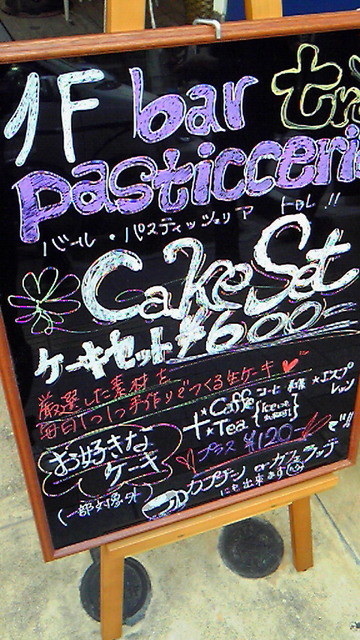 1F bar
pasticceri
バール・パスティッツェリア トロレ!!
Cake Set
ケーキセット ¥600-
厳選した素材を
毎日1つ1つ手作りでつくる生ケーキ
お好きな
ケーキ
(一部対象外)
+ *Caffe コーヒー *エスプ
レッソ
*Tea
プラス ¥120- で!!
カプチーノ or カフェラッテ
にも出来ます